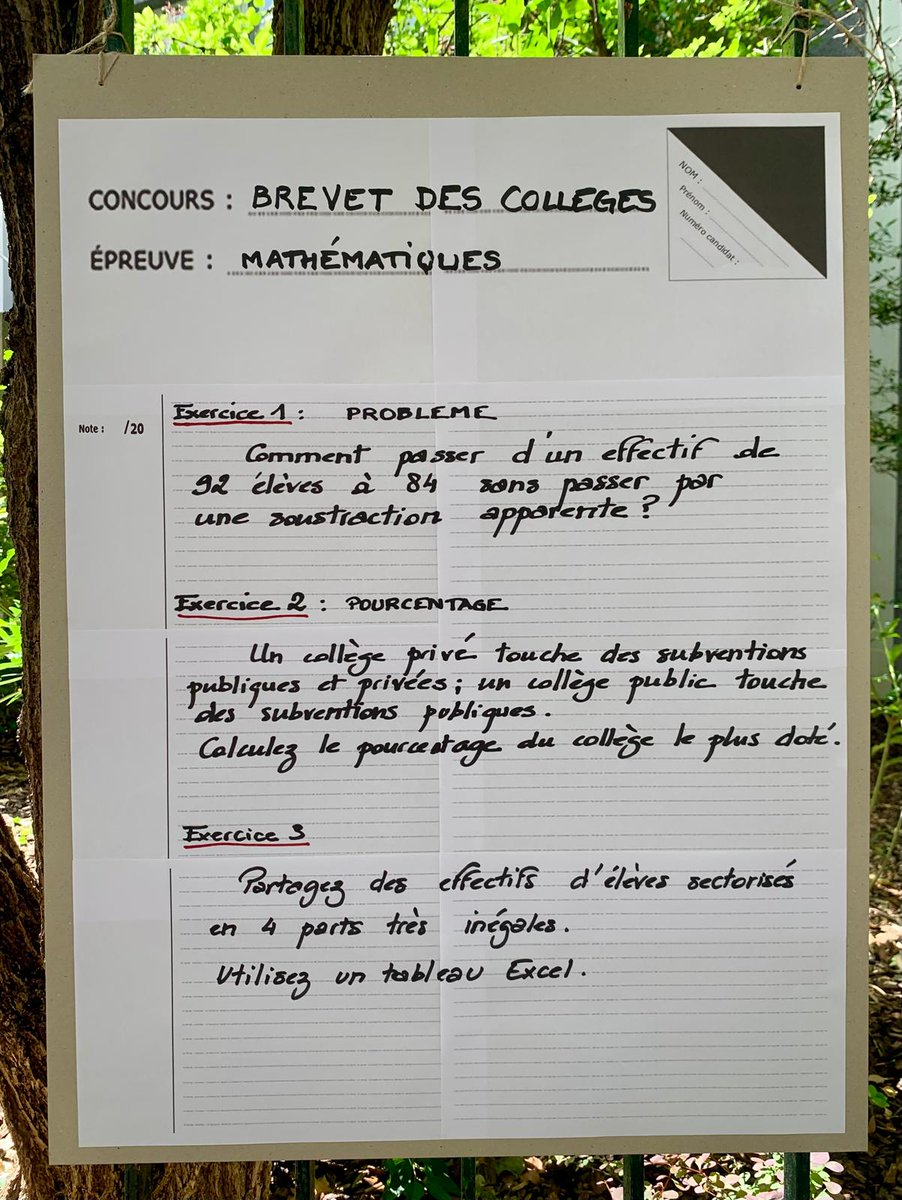 CONCOURS : BREVET DES COLLEGES
ÉPREUVE : MATHÉMATIQUES
NOM :
Prénom :
Numéro candidat :
Note : /20
Exercice 1 : PROBLEME
Comment passer d'un effectif de
92 élèves à 84 sans passer par
une soustraction apparente ?
Exercice 2 : POURCENTAGE
Un collège privé touche des subventions
publiques et privées ; un collège public touche
des subventions publiques.
Calculez le pourcentage du collège le plus doté.
Exercice 3
Partagez des effectifs d'élèves sectorisés
en 4 parts très inégales.
Utilisez un tableau Excel.